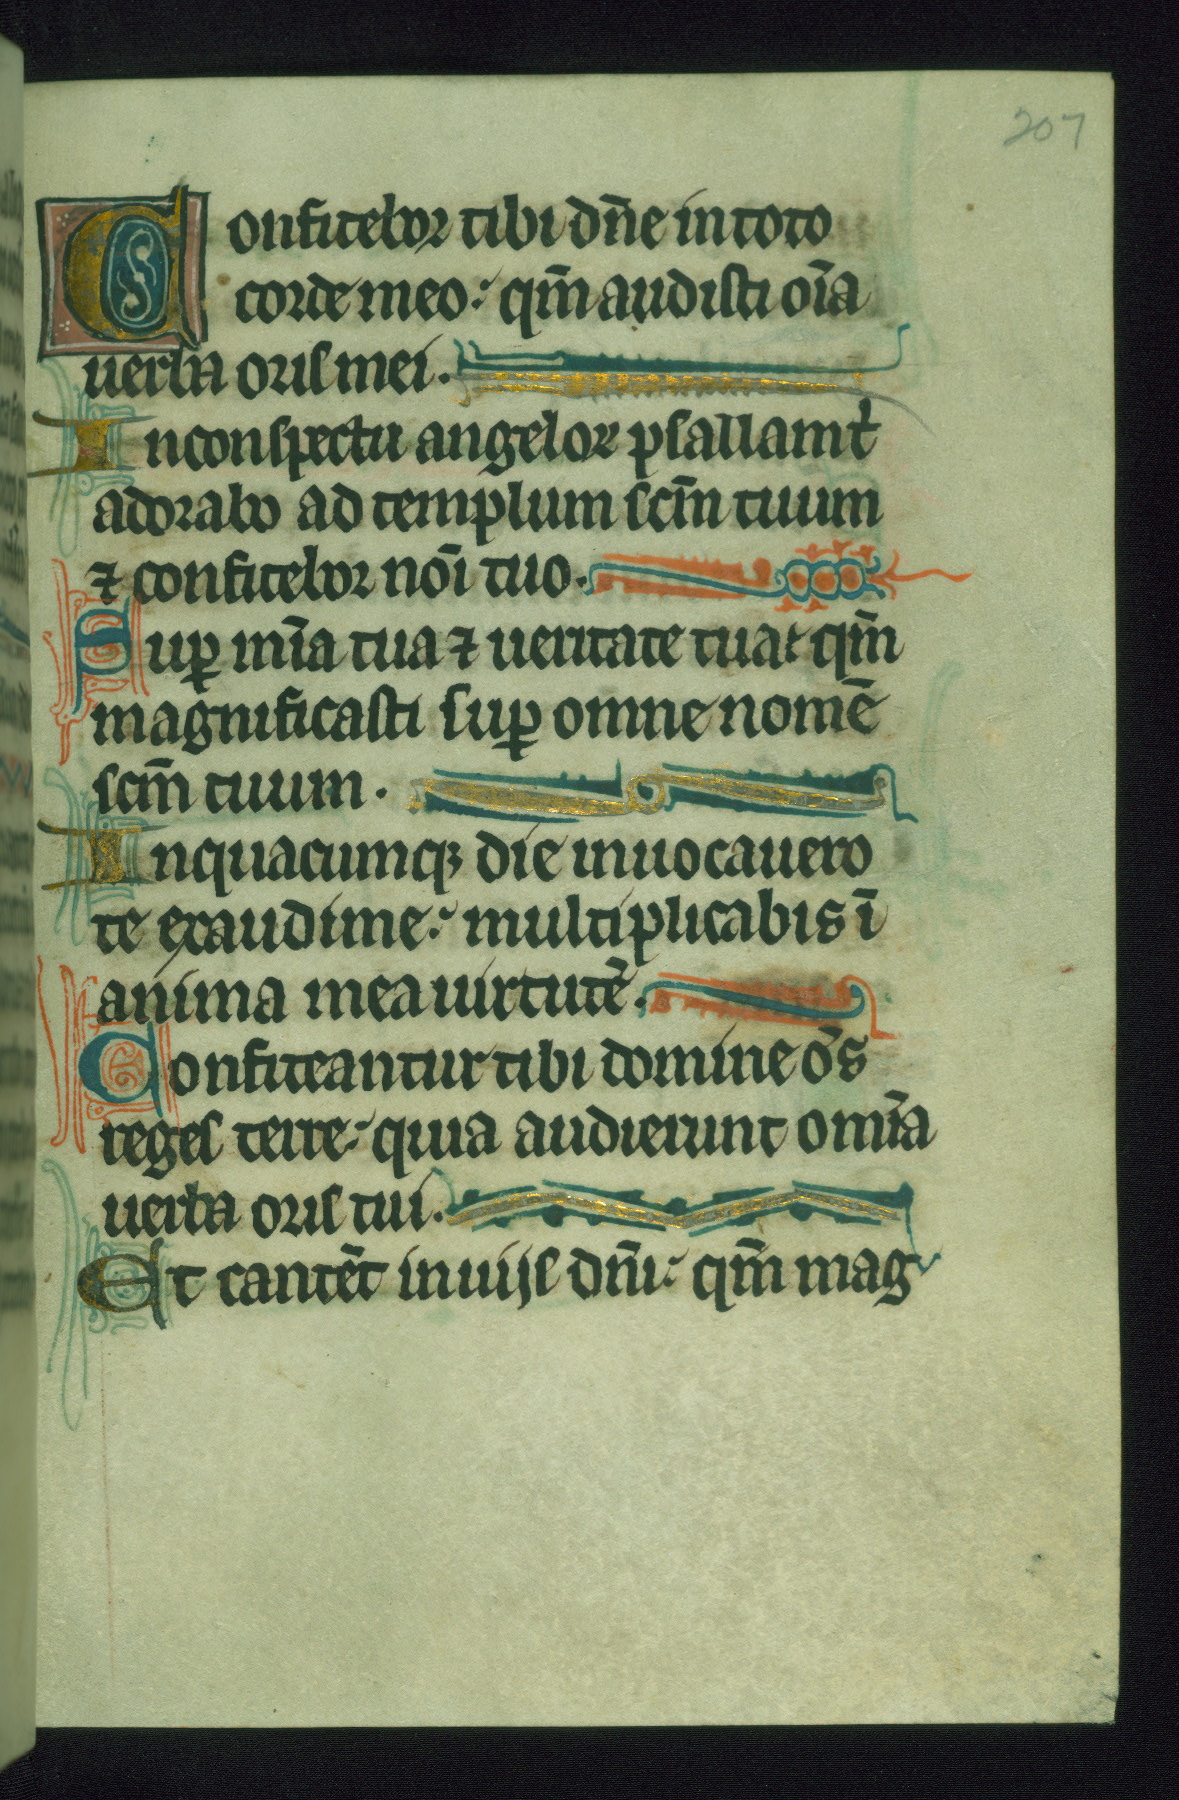 207
Confitebor tibi dn̄e in toto
corde meo: qm̄ audisti oīa
uerba oris mei.
In conspectu angelor psallam t̾
adorabo ad templum scm̄ tuum
⁊ confitebor nōi tuo.
Suꝑ mīa tua ⁊ ueritate tua: qm̄
magnificasti suꝑ omne nomē
scm̄ tuum.
In quacumqꝫ die inuocauero
te exaudi me: multiplicabis ī
anima mea uirtutē.
Confiteantur tibi domine ōs
reges terre: quia audierunt omīa
uerba oris tui.
Et cantēt in uijs dn̄i: qm̄ mag